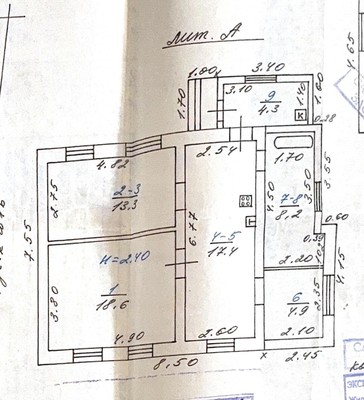 лит. А
1.00
3.40
3.10
9
4.3
1.40
К
1.60
4.65
1.70
0.38
4.82
2.54
1.70
2.75
2-3
13.3
4.50
7-8
8.2
3.50
3.55
7.55
6.77
4-5
17.4
0.60
Н=2.40
0.39
2.20
4.15
3.80
1
18.6
6
4.9
2.35
4.90
2.60
2.10
8.50
х
2.45